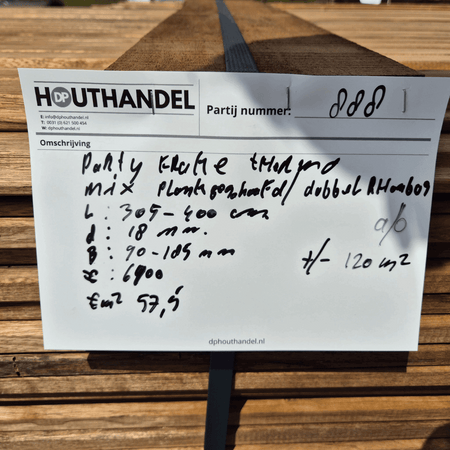 HOUTHANDEL
DP
E: info@dphouthandel.nl
T: 0031 (0) 621 500 456
W: dphouthandel.nl
Partij nummer: 888
Omschrijving
Party
mix
L : 305-400 cm
d : 18 mm.
B : 90-185 mm
€ : 6900
€m² 57,5
a/b
+/- 120 m²
dphouthandel.nl